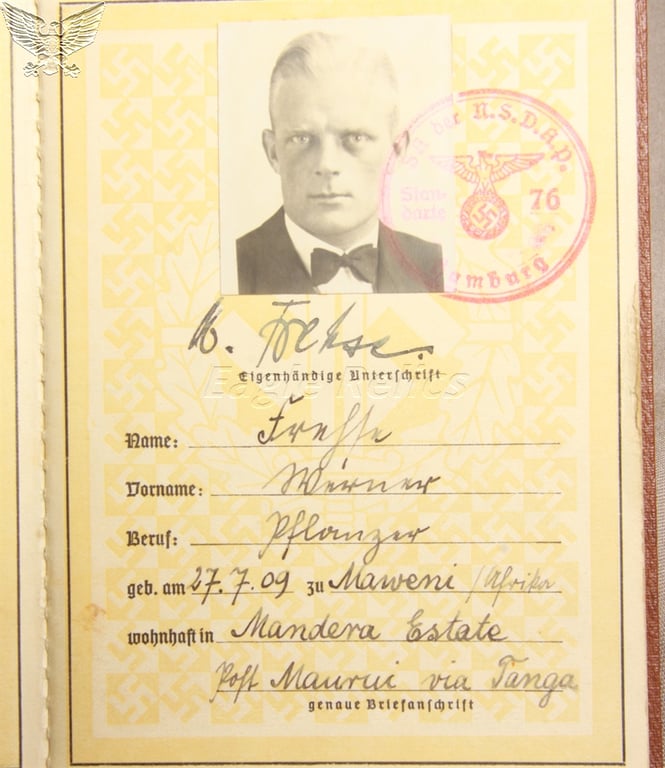 SA der N.S.D.A.P.
Standarte
76
Hamburg
W. Frehse.
Eigenhändige Unterschrift
Eagle Relics
Name: Frehse
Vorname: Werner
Beruf: Pflanzer
geb. am 27.7.09 zu Maweni / Afrika
wohnhaft in Mandera Estate
Post Maurui via Tanga
genaue Briefanschrift